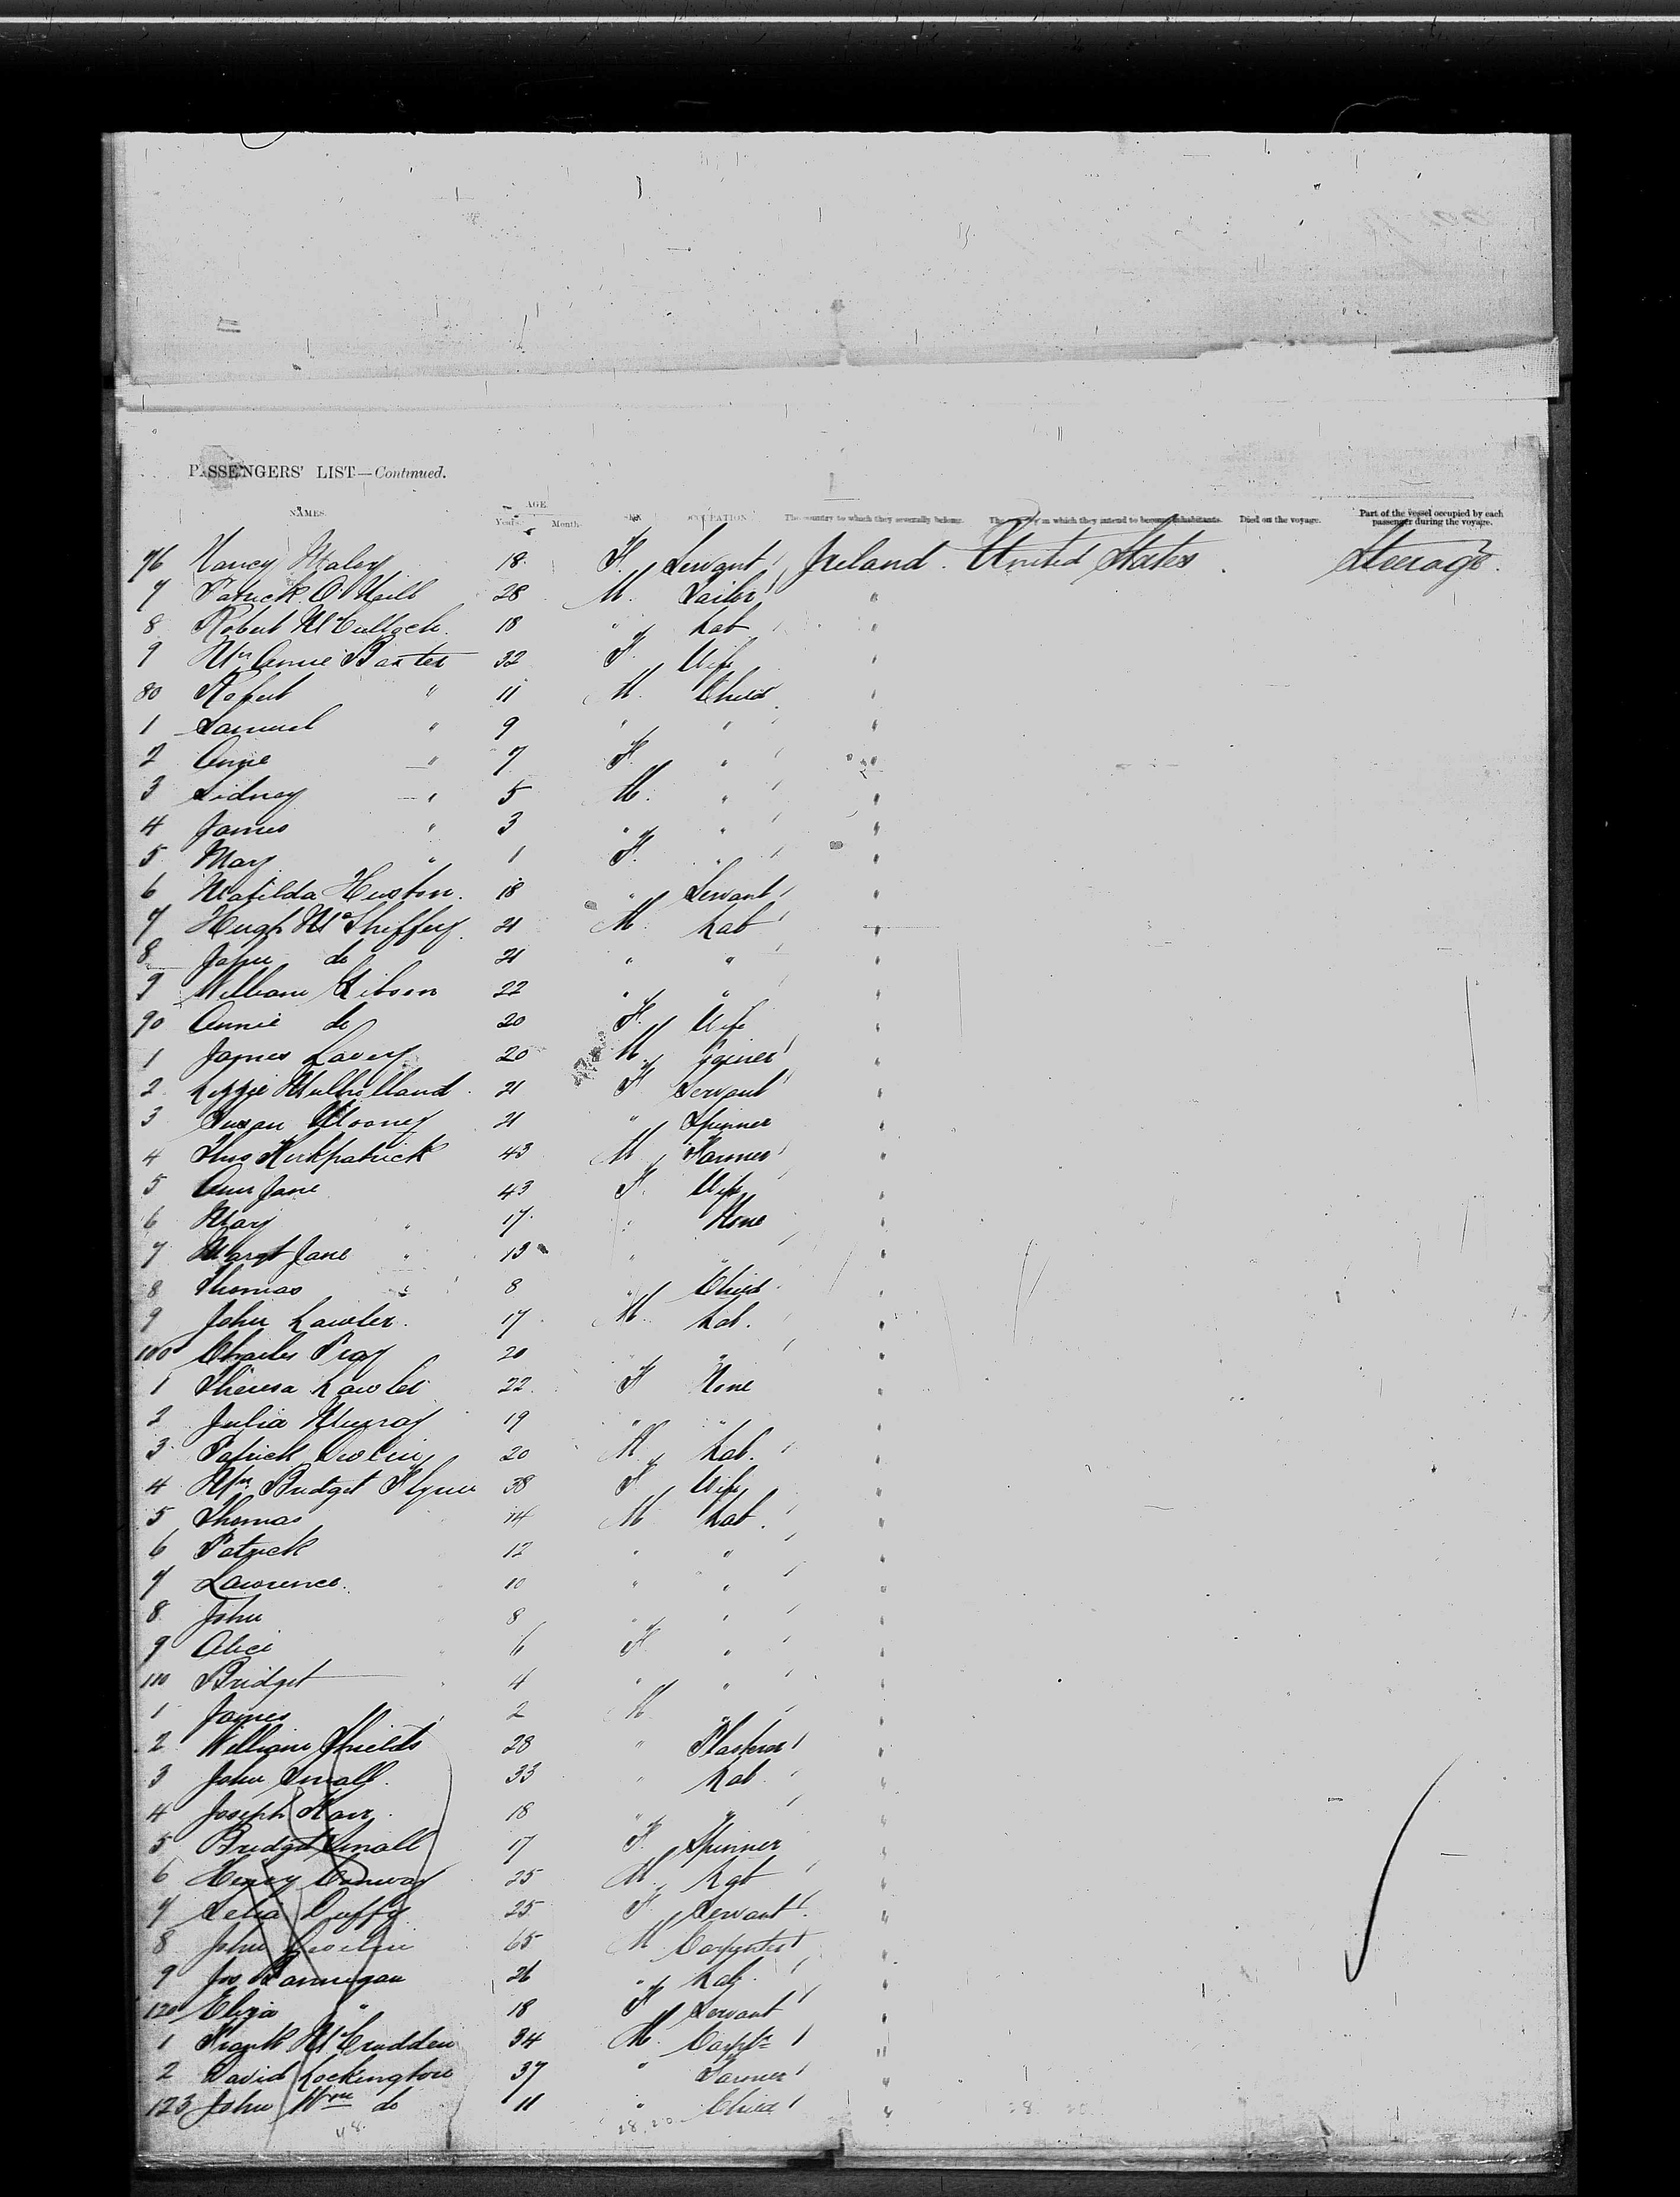 PASSENGERS' LIST—Continued.
NAMES. AGE Years Month SEX OCCUPATION The country to which they severally belong. The country in which they intend to become inhabitants. Died on the voyage. Part of the vessel occupied by each passenger during the voyage.
76 Nancy 18 F. Servant Ireland. United States Steerage.
7 Patrick O'Neill 28 M. Tailor "
8 Robert McCulloch 18 " Lab "
9 Mrs Annie Baxter 32 F. Wife "
80 Robert " 11 M. Child "
1 Samuel " 9 " " "
2 Annie " 7 F. " "
3 Sidney " 5 M. " "
4 James " 3 " " "
5 Mary " 1 F. " "
6 Matilda Huston. 18 " Servant "
7 Hugh McSheffery. 21 M. Lab "
8 John do 21 " " "
9 William Gibson 22 " " "
90 Annie do 20 F. Wife "
1 James Lavery 20 M. Joiner "
2 Lizzie Mulholland 21 F Servant "
3 Susan Mooney 21 " Spinner "
4 Thos Kirkpatrick 43 M Farmer "
5 Ann Jane 43 F. Wife "
6 Mary " 17 " None "
7 Margt Jane " 13 " " "
8 Thomas " 8 " Child "
9 John Lawler. 17 M. Lab. "
100 Charles 20 " " "
1 Theresa Lawler 22 F None "
2 Julia Murray 19 " " "
3 Patrick 20 M Lab. "
4 Mrs Bridget Flynn 38 F Wife "
5 Thomas 14 M Lab. "
6 Patrick 12 " " "
7 Lawrence 10 " " "
8 John 8 " " "
9 Alice 6 F " "
110 Bridget 4 " " "
1 James 2 M " "
2 William Shields 28 " Plasterer "
3 John Small. 33 " Lab "
4 Joseph 18 " " "
5 Bridget Small 17 F. Spinner "
6 Henry Conway 25 M. Lab "
7 Duffy 25 F Servant "
8 John 65 M Carpenter "
9 Jos Lannigan 26 " Lab. "
120 Eliza " 18 F Servant "
1 Frank McCrudden 34 M. Carptr "
2 David Lockington 37 " Farmer "
123 John Wm do 11 " Child "
48
28.20